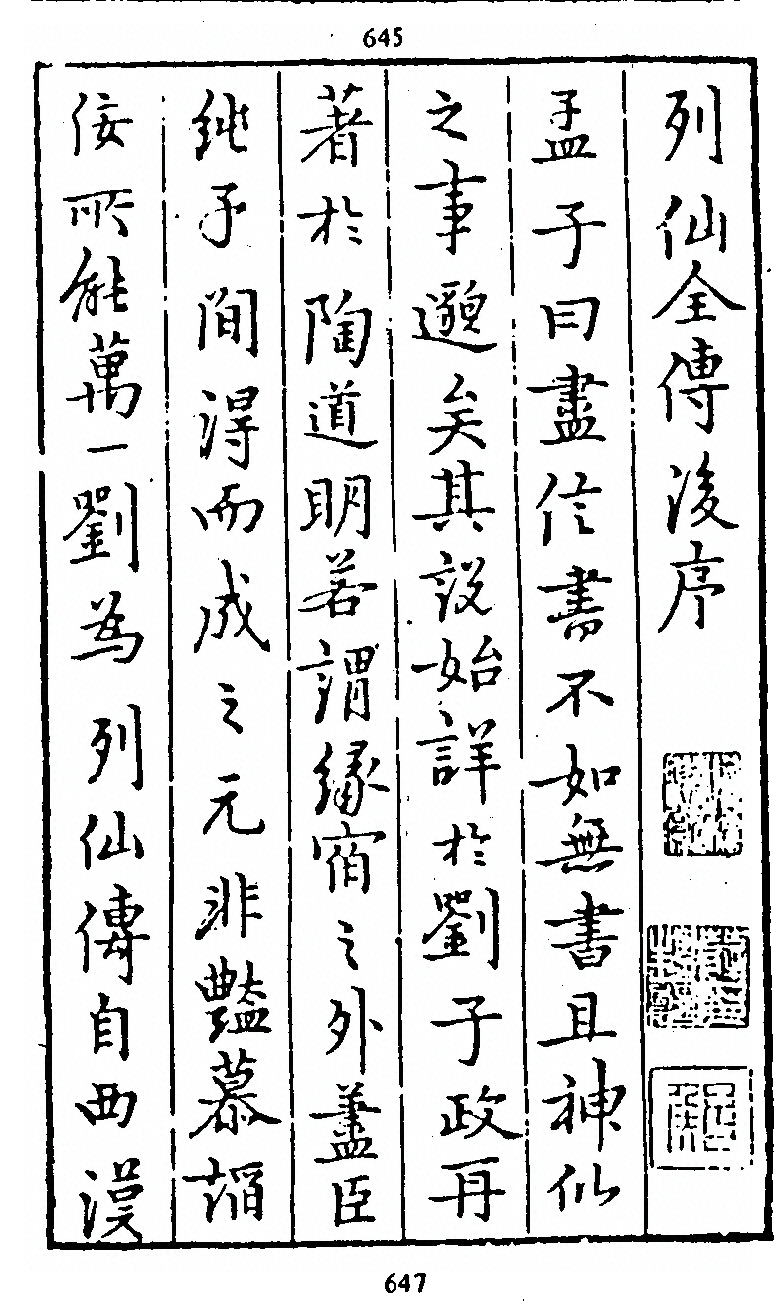 645
列仙全傳後序
孟子曰盡信書不如無書且神仙
之事邈矣其說始詳於劉子政再
著於陶道明若謂緣宿之外藎臣
純子間得而成之元非豔慕謟
佞所能萬一劉為列仙傳自西漢
647